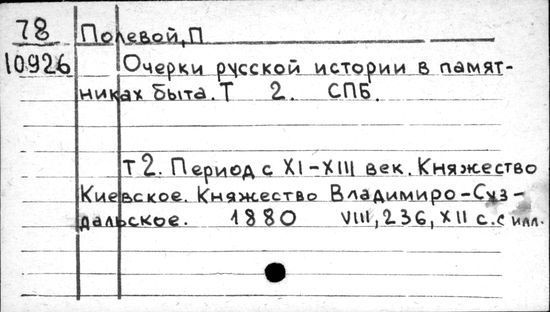 78 Полевой, П
10926 Очерки русской истории в памят-
никах быта. Т 2. СПБ.
Т 2. Период с XI-XIII век. Княжество
Киевское. Княжество Владимиро-Суз-
дальское. 1880 VIII, 236, XII с. с илл.